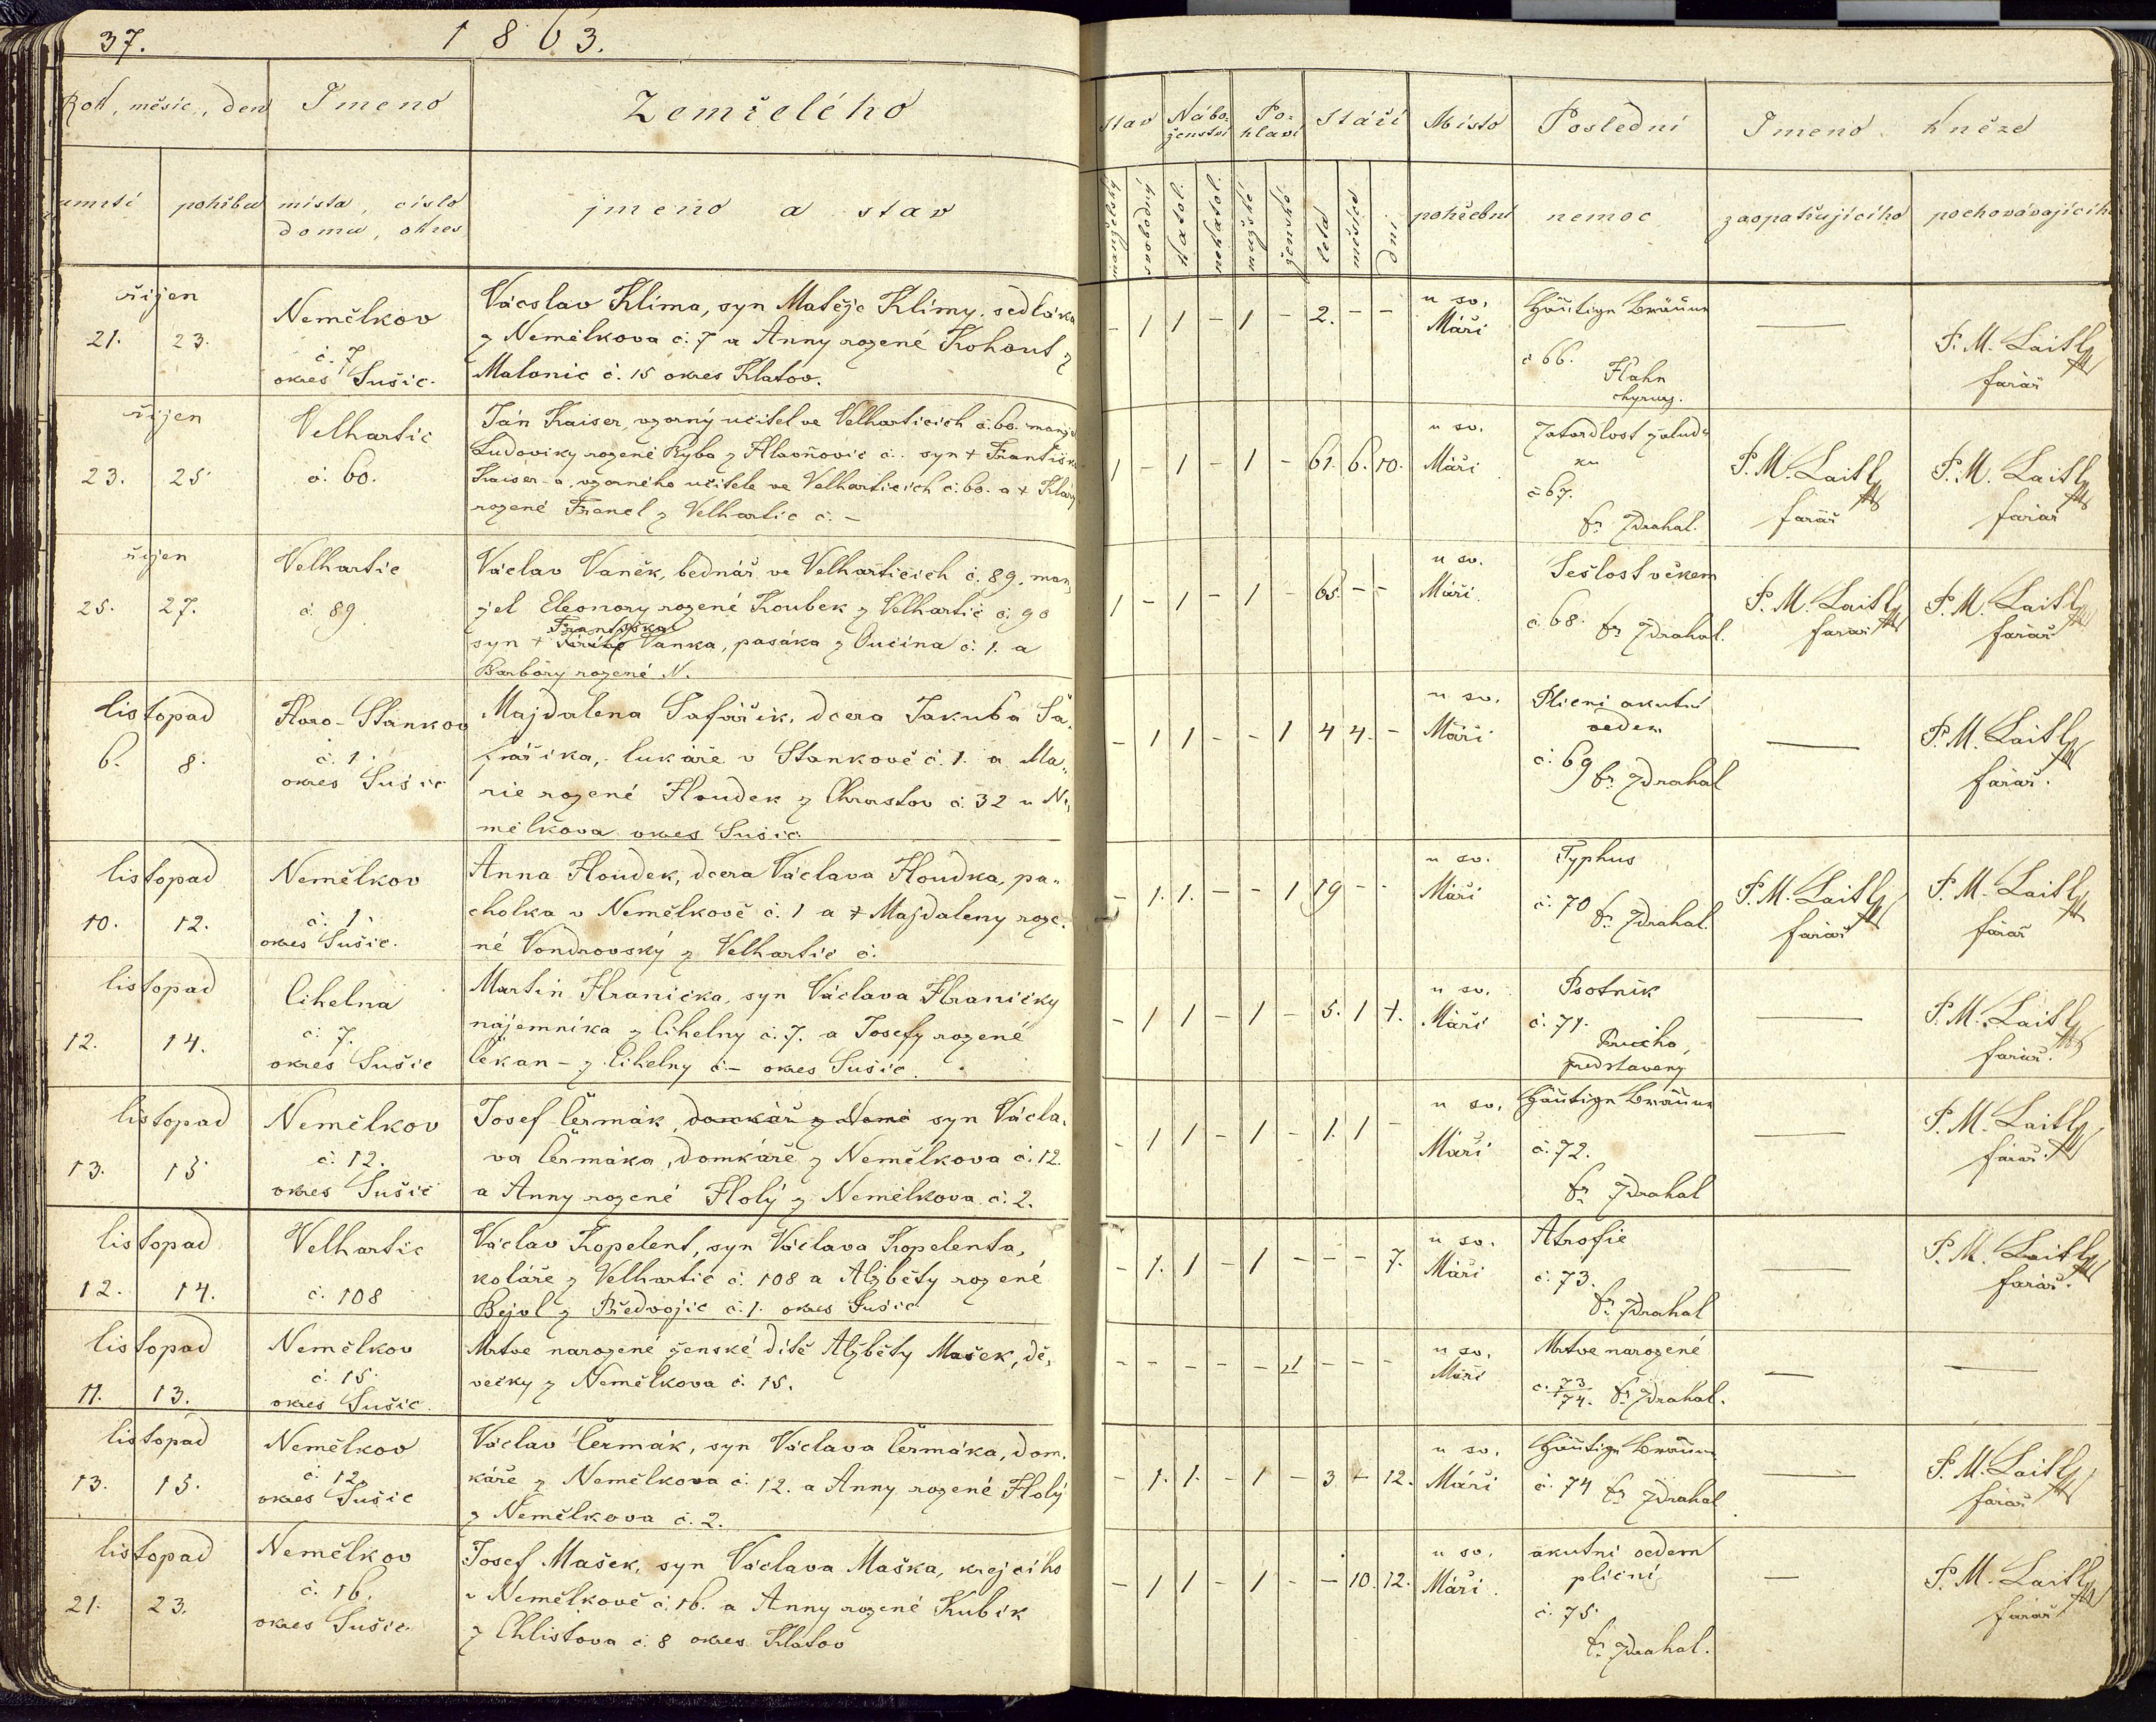 37.
1863.
Rok, měsíc, den
Jmeno
Zemřelého
umrtí
pohřbu
místa, číslo
domu, okres
jmeno a stav
Stav
Nábo-
ženství
Po-
hlaví
Stáří
Místo
Poslední
Jmeno
kněze
manželský
svobodný
katol.
nekatol.
mužské
ženské
leta
měsíce
dni
pohřební
nemoc
zaopatřujícího
pochovávajícího
říjen
21. 23.
Nemělkov
č. 7
okres Sušic.
Vácslav Klima, syn Matěje Klimy, sedláka
z Nemělkova č. 7 a Anny rozené Kohout z
Malonic č. 15 okres Klatov.
- 1 1 - 1 - 2. - -
u sv.
Máří
Häutige Bräune
č 66.
Hahn
chyrurg.
—
P. M. Laitl
farář
říjen
23. 25
Velhartic
č. 60.
Ján Kaiser, vzorný učitel ve Velharticích č. 60. manžel
Ludoviky rozené Ryba z Hlavňovic č. syn + Františka
Kaiser-a, vzorného učitele ve Velharticích č. 60. a + Klary
rozené Francl z Velhartic č. -
1 - 1 - 1 - 61. 6. 10.
u sv.
Máří
Zatvrdlost žalud-
ku
č 67.
fr. Zdrahal.
P. M. Laitl
farář
P. M. Laitl
farář
říjen
25. 27.
Velhartic
č. 89
Václav Vaněk, bednář ve Velharticích č. 89. man-
žel Eleonory rozené Koubek z Velhartic č. 90
Františka
syn + Vaňka, pasáka z Oučína č. 1. a
Barbory rozené N.
1 - 1 - 1 - 65 - -
u sv.
Máří.
Sešlost věkem
č. 68. fr Zdrahal.
P. M. Laitl
farář
P. M. Laitl
farář
listopad
6. 8.
Horo-Stankov
č. 1.
okres Sušic
Majdalena Šafářik, dcera Jakuba Ša-
fářika, lukáře v Stankově č. 1. a Ma-
rie rozené Houdek z Chrastov č. 32 u Ne-
mělkova okres Sušic
- 1 1 - - 1 4 4. -
u sv.
Máří
Plicní akutní
oedem
č. 69 fr Zdrahal
—
P. M. Laitl
farář.
listopad
10. 12.
Nemělkov
č. 1.
okres Sušic.
Anna Houdek, dcera Václava Houdka, pa-
cholka v Nemělkově č. 1 a + Majdaleny roze-
né Vondrovský z Velhartic č.
- 1. 1. - - 1 19 - -
u sv.
Máří
Typhus
č. 70 fr. Zdrahal.
P. M. Laitl
farář
P. M. Laitl
farář
listopad
12. 14.
Cihelna
č. 7.
okres Sušic
Martin Hranička, syn Václava Hraničky
nájemníka z Cihelny č. 7. a Josefy rozené
Čekan - z Cihelny č - okres Sušic.
- 1 1 - 1 - 5. 1 1.
u sv.
Máří
Psotník
č. 71.
predstaveny
—
P. M. Laitl
farář.
listopad
13. 15
Nemělkov
č. 12.
okres Sušic
Josef Čermák, domkář z Nemě syn Václa-
va Čermáka, domkáře z Nemělkova č. 12.
a Anny rozené Holý z Nemělkova č. 2.
- 1 1 - 1 - 1. 1 -
u sv.
Máří
Häutige Bräune
č. 72.
fr Zdrahal
—
P. M. Laitl
farář.
listopad
12. 14.
Velhartic
č. 108
Václav Kopelent, syn Václava Kopelenta,
koláře z Velhartic č. 108 a Alžběty rozené
Bejvl z Předvojic č. 1. okres Sušic
- 1. 1 - 1 - - - 7.
u sv.
Máří
Atrofie
č. 73.
fr. Zdrahal
—
P. M. Laitl
farář.
listopad
11. 13.
Nemělkov
č. 15.
okres Sušic.
Mrtve narozené ženské dítě Alžběty Mašek, dě-
večky z Nemělkova č. 15.
- - - - - 1 - - -
u sv.
Máří
Mrtve narozené
č. 73/74. fr Zdrahal.
—
—
listopad
13. 15.
Nemělkov
č. 12.
okres Sušic
Václav Čermák, syn Václava Čermáka, dom-
káře z Nemělkova č. 12. a Anny rozené Holý
z Nemělkova č. 2.
- 1. 1. - 1 - 3 - 12.
u sv.
Máří
Häutige Bräune
č. 74 fr Zdrahal
—
P. M. Laitl
farář
listopad
21. 23.
Nemělkov
č. 16.
okres Sušic.
Josef Mašek, syn Václava Maška, krejčího
v Nemělkově č. 16. a Anny rozené Kubik
z Chlistova č. 8 okres Klatov
- 1 1 - 1 - - 10. 12.
u sv.
Máří.
akutní oedem
plicní
č. 75.
fr Zdrahal.
—
P. M. Laitl
farář